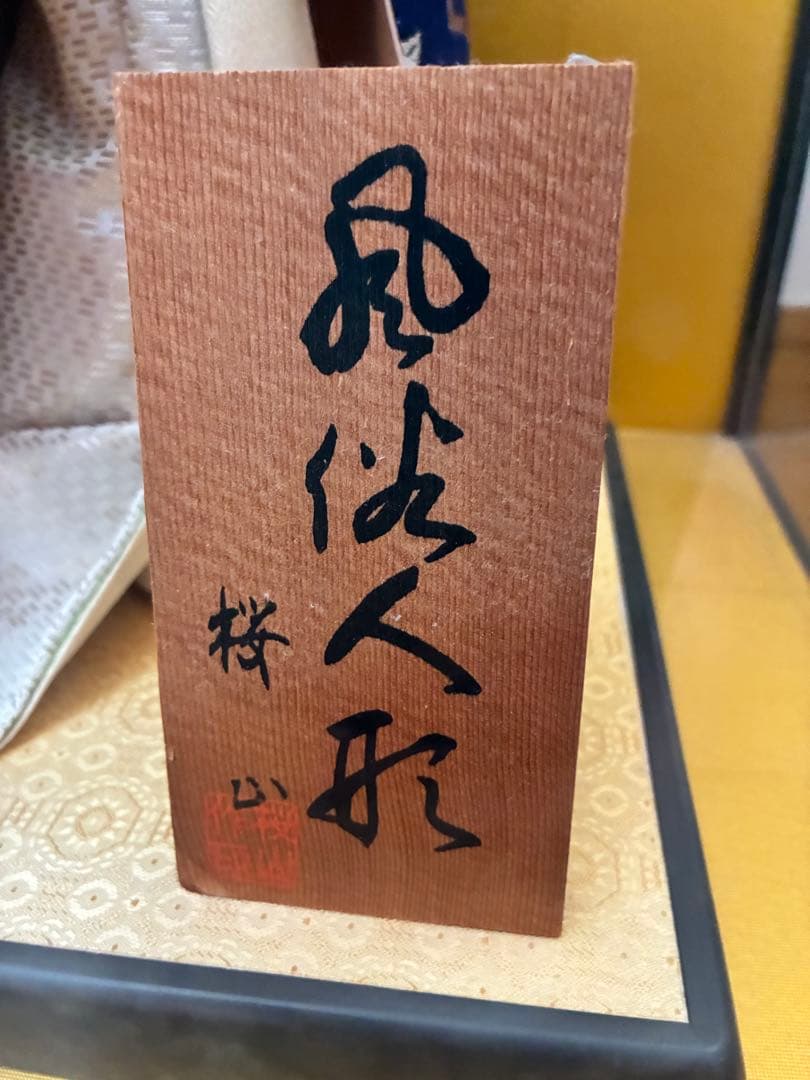 風俗人形
桜山